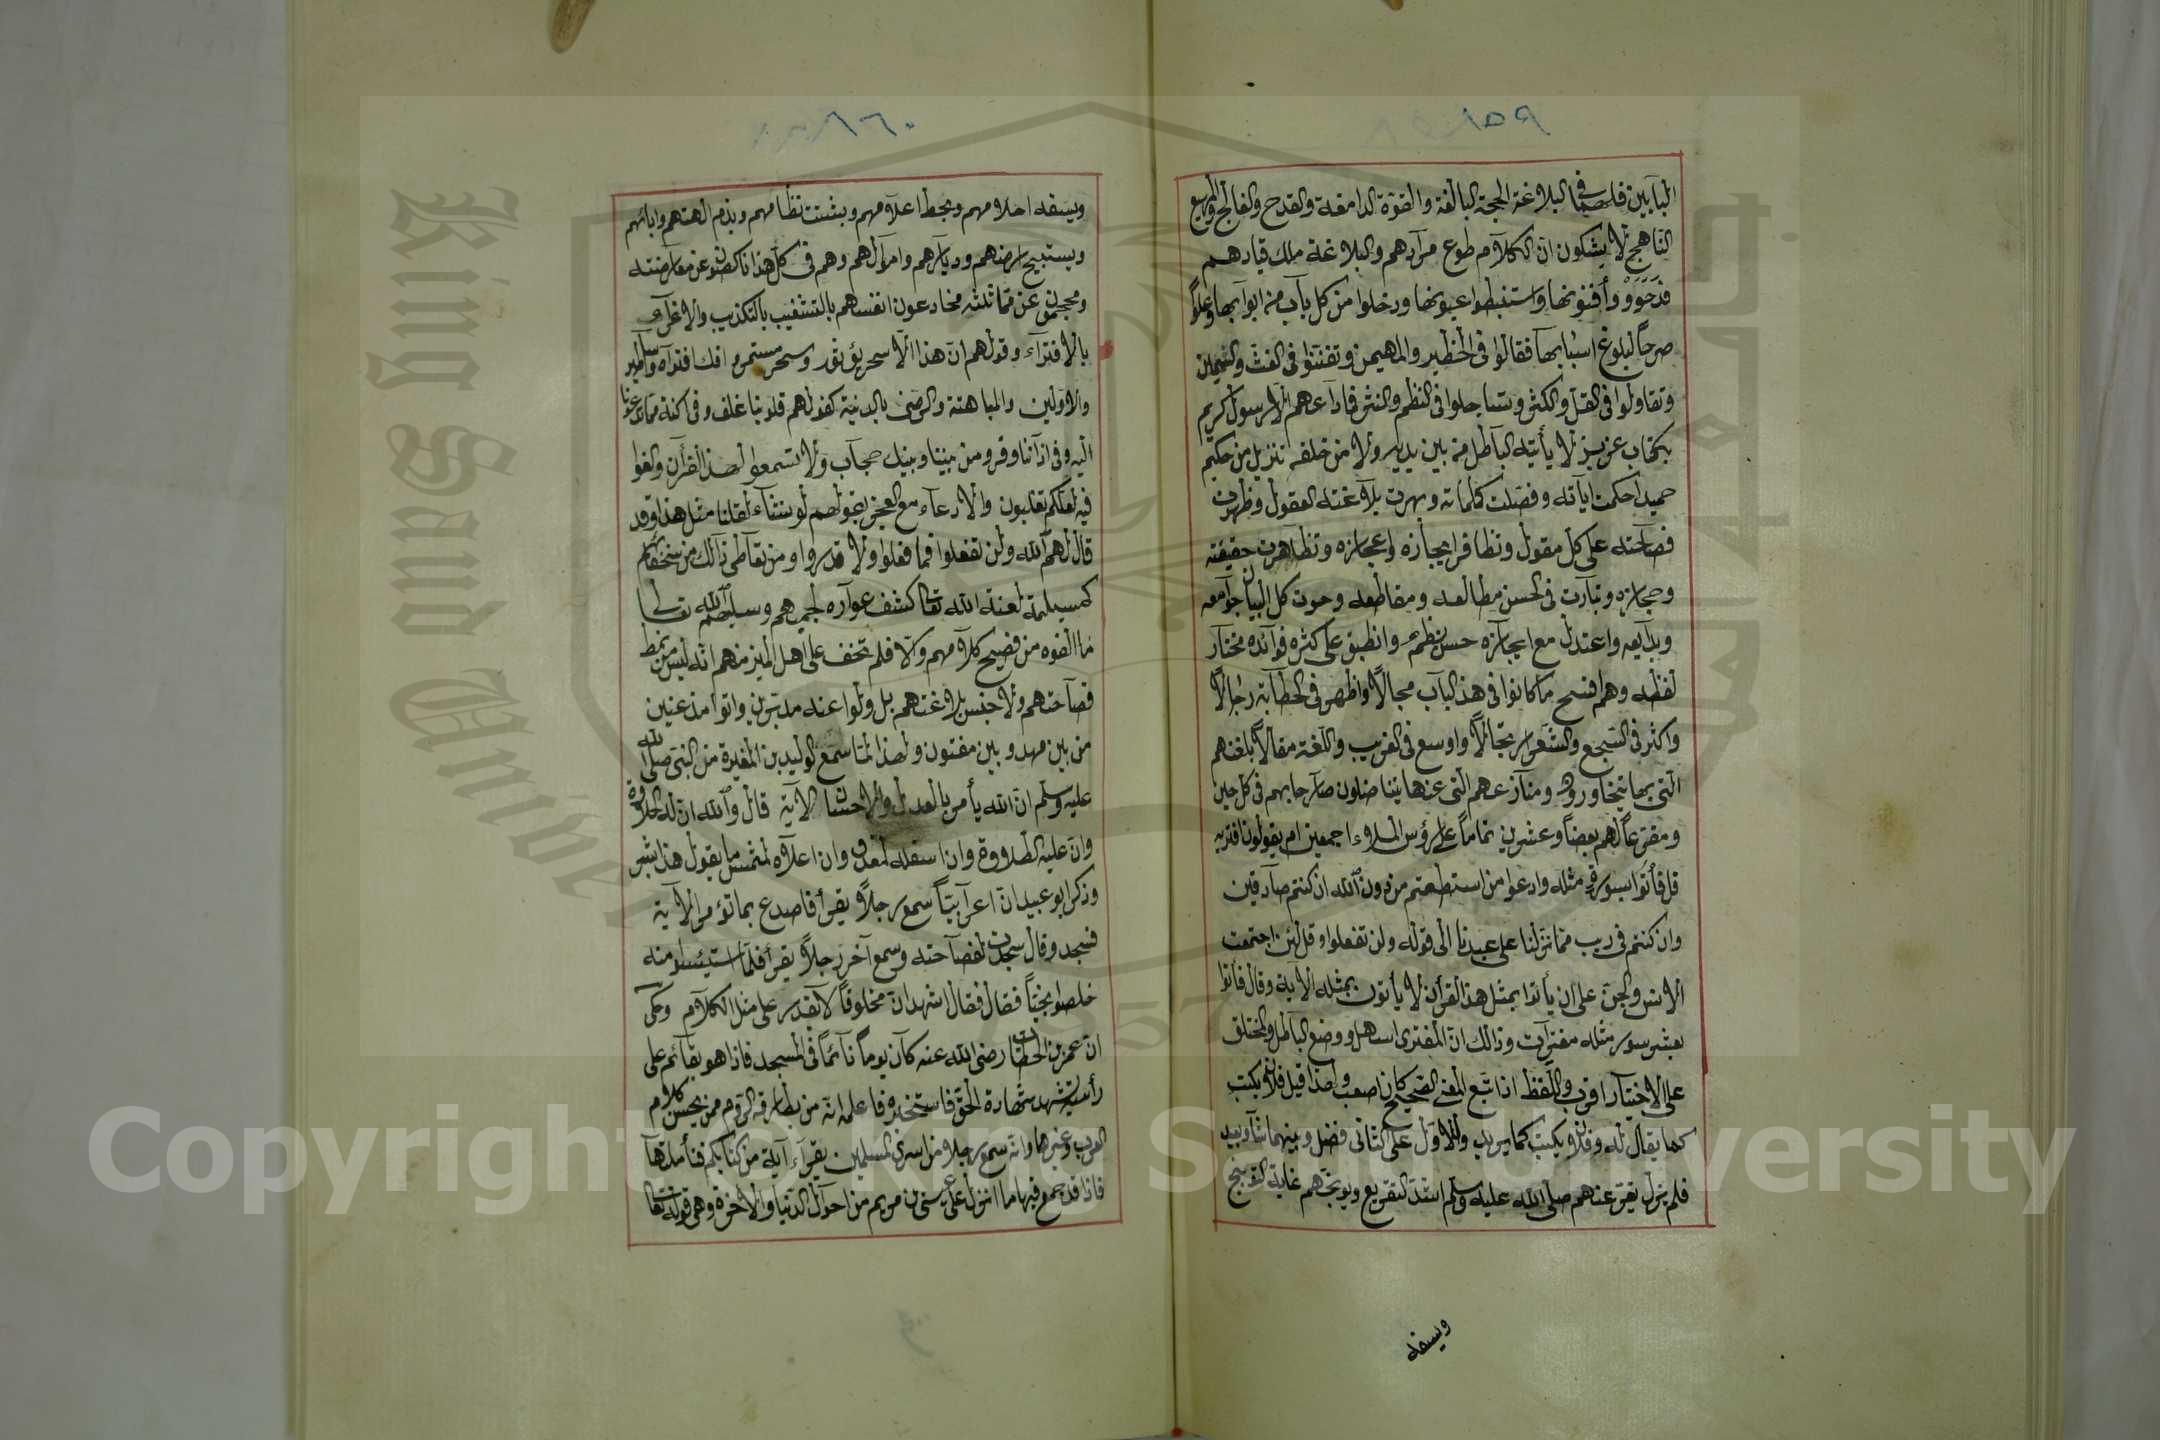 ١٥٩
البابين فلهما في البلاغة الحجة البالغة والقوة الدامغة والقدح والفالج والمهيع
الناهج لا يشكون ان الكلام طوع مرادهم والبلاغة ملك قيادهم
قد حووا وأفنونها واستنبطوا عيونها ودخلوا من كل باب من ابوابها وعلوا
صرحاً لبلوغ اسبابها فقالوا في الخطير والمهين وتفننوا في الغث والسمين
وتقاولوا في القل والكثر وتساجلوا في النظم والنثر فما راعهم الا رسول كريم
بكتاب عزيز لا يأتيه الباطل من بين يديه ولا من خلفه تنزيل من حكيم
حميد احكمت اياته وفصلت كلماته وبهرت بلاغته العقول وظهرت
فصاحته على كل مقول وتظافر ايجازه واعجازه وتظاهرت حقيقته
ومجازه وتبارت في الحسن مطالعه ومقاطعه وحوت كل البيان جوامعه
وبدايعه واعتدل مع ايجازه حسن نظمه وانطبق على كثرة فوائده مختار
لفظه وهم افسح ما كانوا في هذا الباب مجالاً واظهر في الخطابة رجالاً
واكثر في السجع والشعر ارتجالاً واوسع في الغريب واللغة مقالاً بلغتهم
التي بها يتحاورون ومنازعهم التي عنها يتناضلون صارخا بهم في كل حين
ومقرعاً لهم بضعاً وعشرين عاماً على رؤس الملاء اجمعين ام يقولون افتريه
قل فأتوا بسورة مثله وادعوا من استطعتم من دون الله ان كنتم صادقين
وان كنتم في ريب مما نزلنا على عبدنا الى قوله ولن تفعلوا وقل لئن اجتمعت
الانس والجن على ان يأتوا بمثل هذا القرآن لا يأتون بمثله الآية وقال فأتوا
بعشر سور مثله مفتريات وذالك ان المفترى اسهل ووضع الباطل والمختلق
على الاختيار اقرب واللفظ اذا تبع المعنى الصحيح كان اصعب ولهذا قيل فلان يكتب
كما يقال له وفلان يكتب كما يريد وللاول على الثانى فضل وبينهما شأو بعيد
فلم يزل يقرعهم صلى الله عليه وسلم اشد التقريع ويوبخهم غاية التوبيخ
ويسفه
١٦٠
ويسفه احلامهم ويحط اعلامهم ويشتت نظامهم ويذم الهتهم واباءهم
ويستبيح ارضهم وديارهم واموالهم وهم في كل هذا ناكصون عن معارضته
ومحجمون عن مماثلته مخادعون انفسهم بالتشغيب بالتكذيب والاغراء
بالافتراء وقولهم ان هذا الا سحر يؤثر وسحر مستمر وافك افتراه واساطير
والاولين والمباهتة والرضى بالدنية كقولهم قلوبنا غلف وفي اكنة مما تدعونا
اليه وفي اذاننا وقر ومن بيننا وبينك حجاب ولا تسمعوا لهذا القرآن والغوا
فيه لعلكم تغلبون والادعاء مع العجز بقولهم لو نشاء لقلنا مثل هذا وقد
قال لهم الله ولن تفعلوا فما فعلوا ولا قدروا ومن تعاطى ذالك من سخفائهم
كمسيلمة لعنة الله تعالى كشف عواره لجميعهم وسلبهم الله تعالى
ما الفوه من فصيح كلامهم والا فلم يخف على اهل الميز منهم انه ليس من نمط
فصاحتهم ولا جنس بلاغتهم بل ولوا عنه مدبرين واتوا مذعنين
من بين مهتد وبين مفتون ولهذا لما سمع الوليد بن المغيرة من النبي صلى الله
عليه وسلم ان الله يأمر بالعدل والاحسان الاية قال والله ان له لحلاوة
وان عليه لطلاوة وان اسفله لمغدق وان اعلاه لمثمر ما يقول هذا بشر
وذكر ابو عبيد ان اعرابياً سمع رجلاً يقرأ فاصدع بما تؤمر الآية
فسجد وقال سجدت لفصاحته وسمع آخر رجلاً يقرأ فلما استيئسوا منه
خلصوا نجيّاً فقال فقال اشهد ان مخلوقاً لا يقدر على مثل الكلام وحكى
ان عمر بن الخطاب رضي الله عنه كان يوماً نائماً في المسجد فاذا هو بقائم على
رأسه يتشهد شهادة الحق فاستخبره فاعلمه انه من بطارقة الروم ممن يحسن كلام
العرب وغيرها وانه سمع رجلا من اسرى المسلمين يقرأ آية من كتابكم فتأملتها
فاذا قد جمع فيها ما انزل على عيسى بن مريم من احوال الدنيا والاخرة وهى قوله تعالى